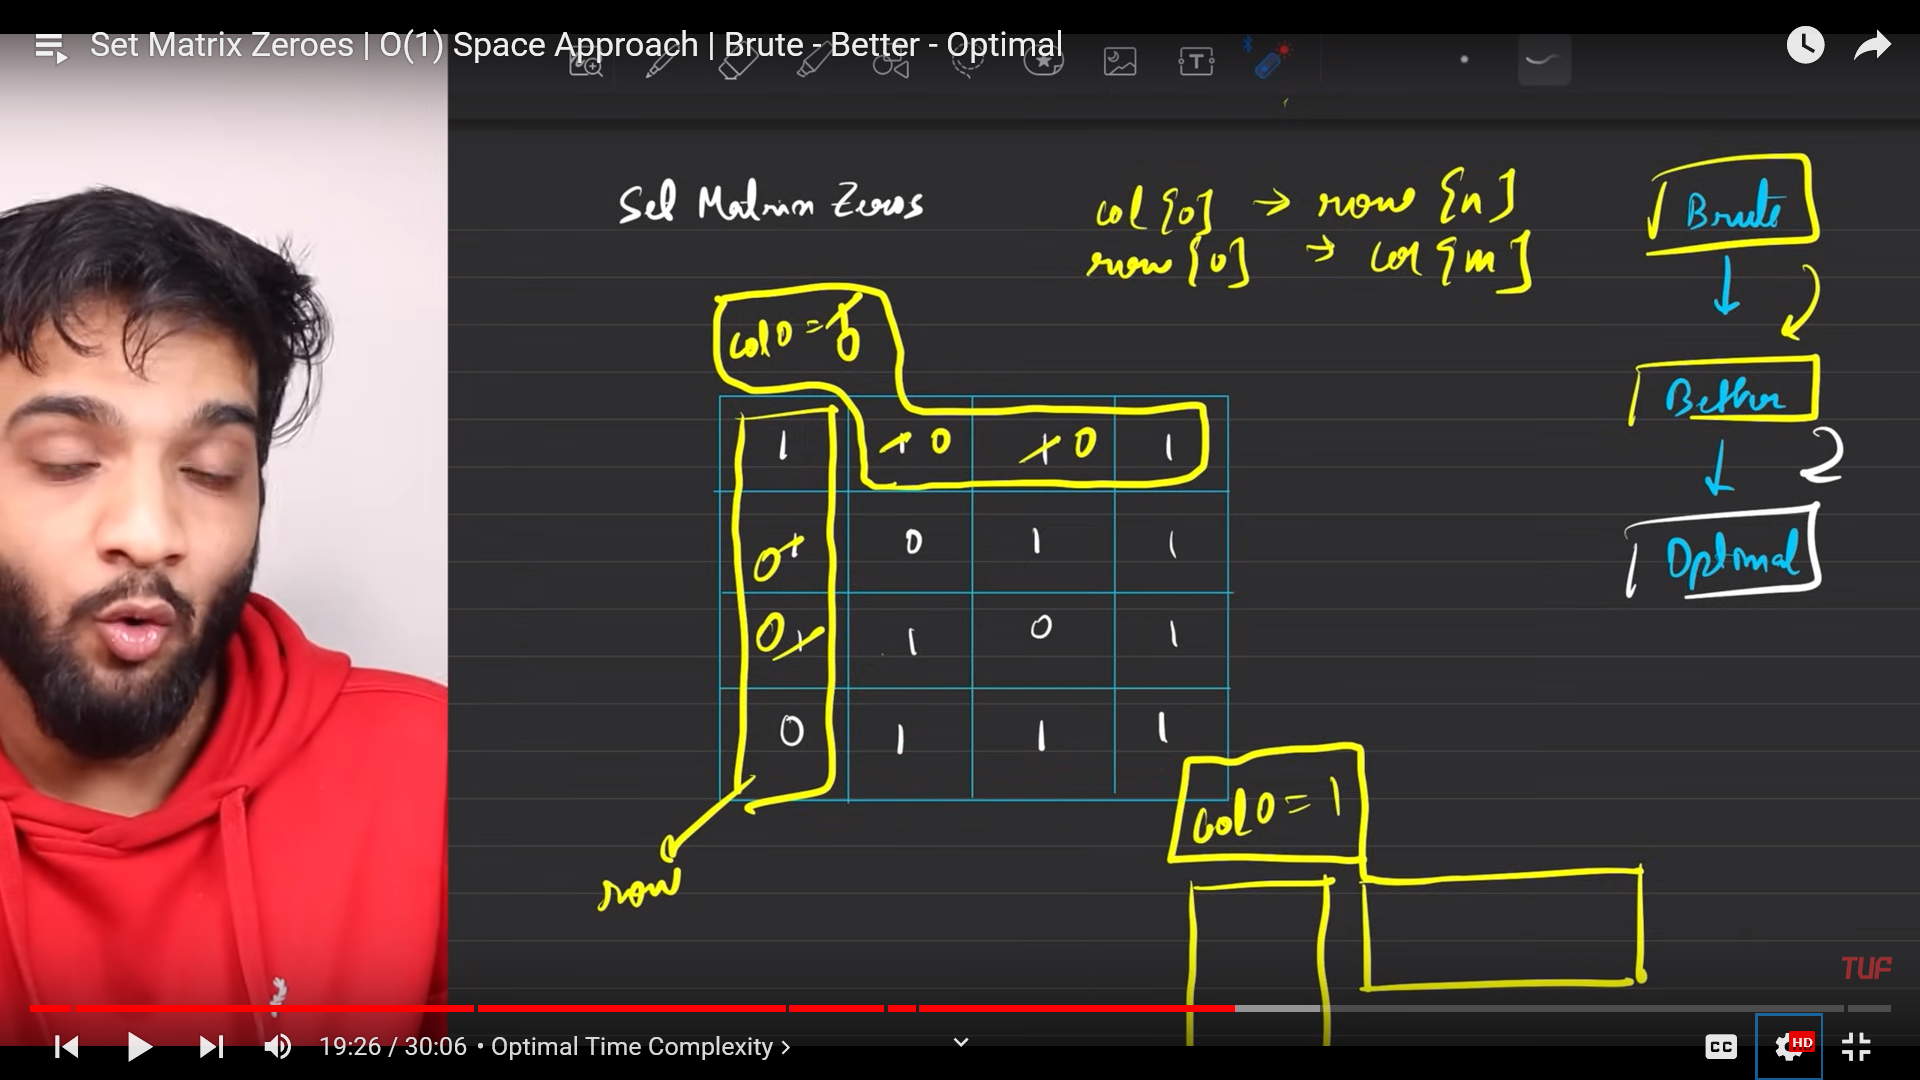 Set Matrix Zeroes | O(1) Space Approach | Brute - Better - Optimal
T
Set Matrix Zeros
col[0] → row [n]
row[0] → col [m]
Brute
Better
2
Optimal
col0 =
1 1 0 1 0 1
0 1 0 1 1
0 1 1 0 1
0 1 1 1
row
col0 = 1
TUF
19:26 / 30:06 • Optimal Time Complexity >
CC
HD